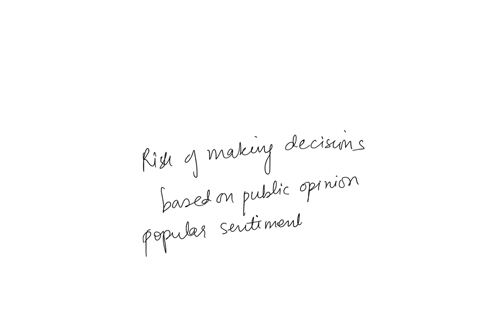 Risk of making decisions
based on public opinion
popular sentiment